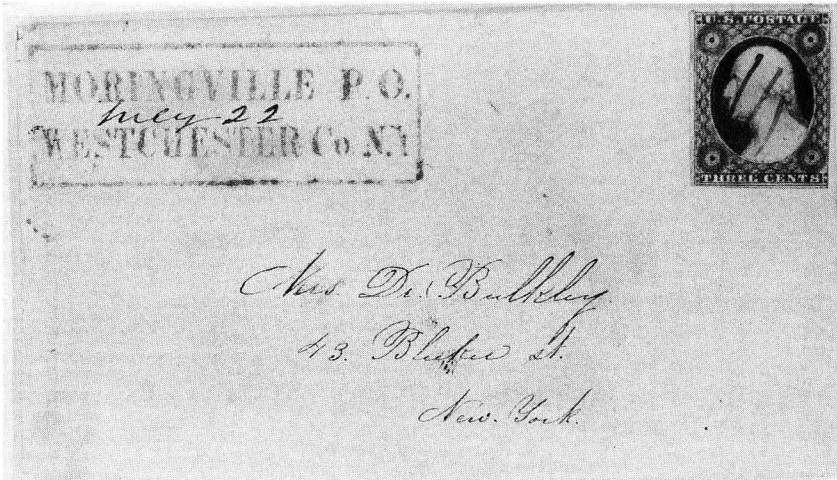 MORINGVILLE P.O.
May 22
WESTCHESTER Co N.Y
U.S. POSTAGE
THREE CENTS
Mrs. Dr. Bulkley.
43. Bleker st.
New. York.